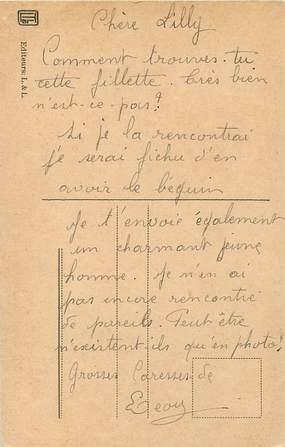 Chère Lilly
Comment trouves-tu
cette fillette. Très bien
n'est-ce-pas?
Si je la rencontrai
je serai fichu d'en
avoir le béguin
Je t'envoie également
un charmant jeune
homme. Je n'en ai
pas encore rencontré
de pareils. Peut être
n'existent-ils qu'en photo!
Grosses Caresses de
Editeurs: I. & L.